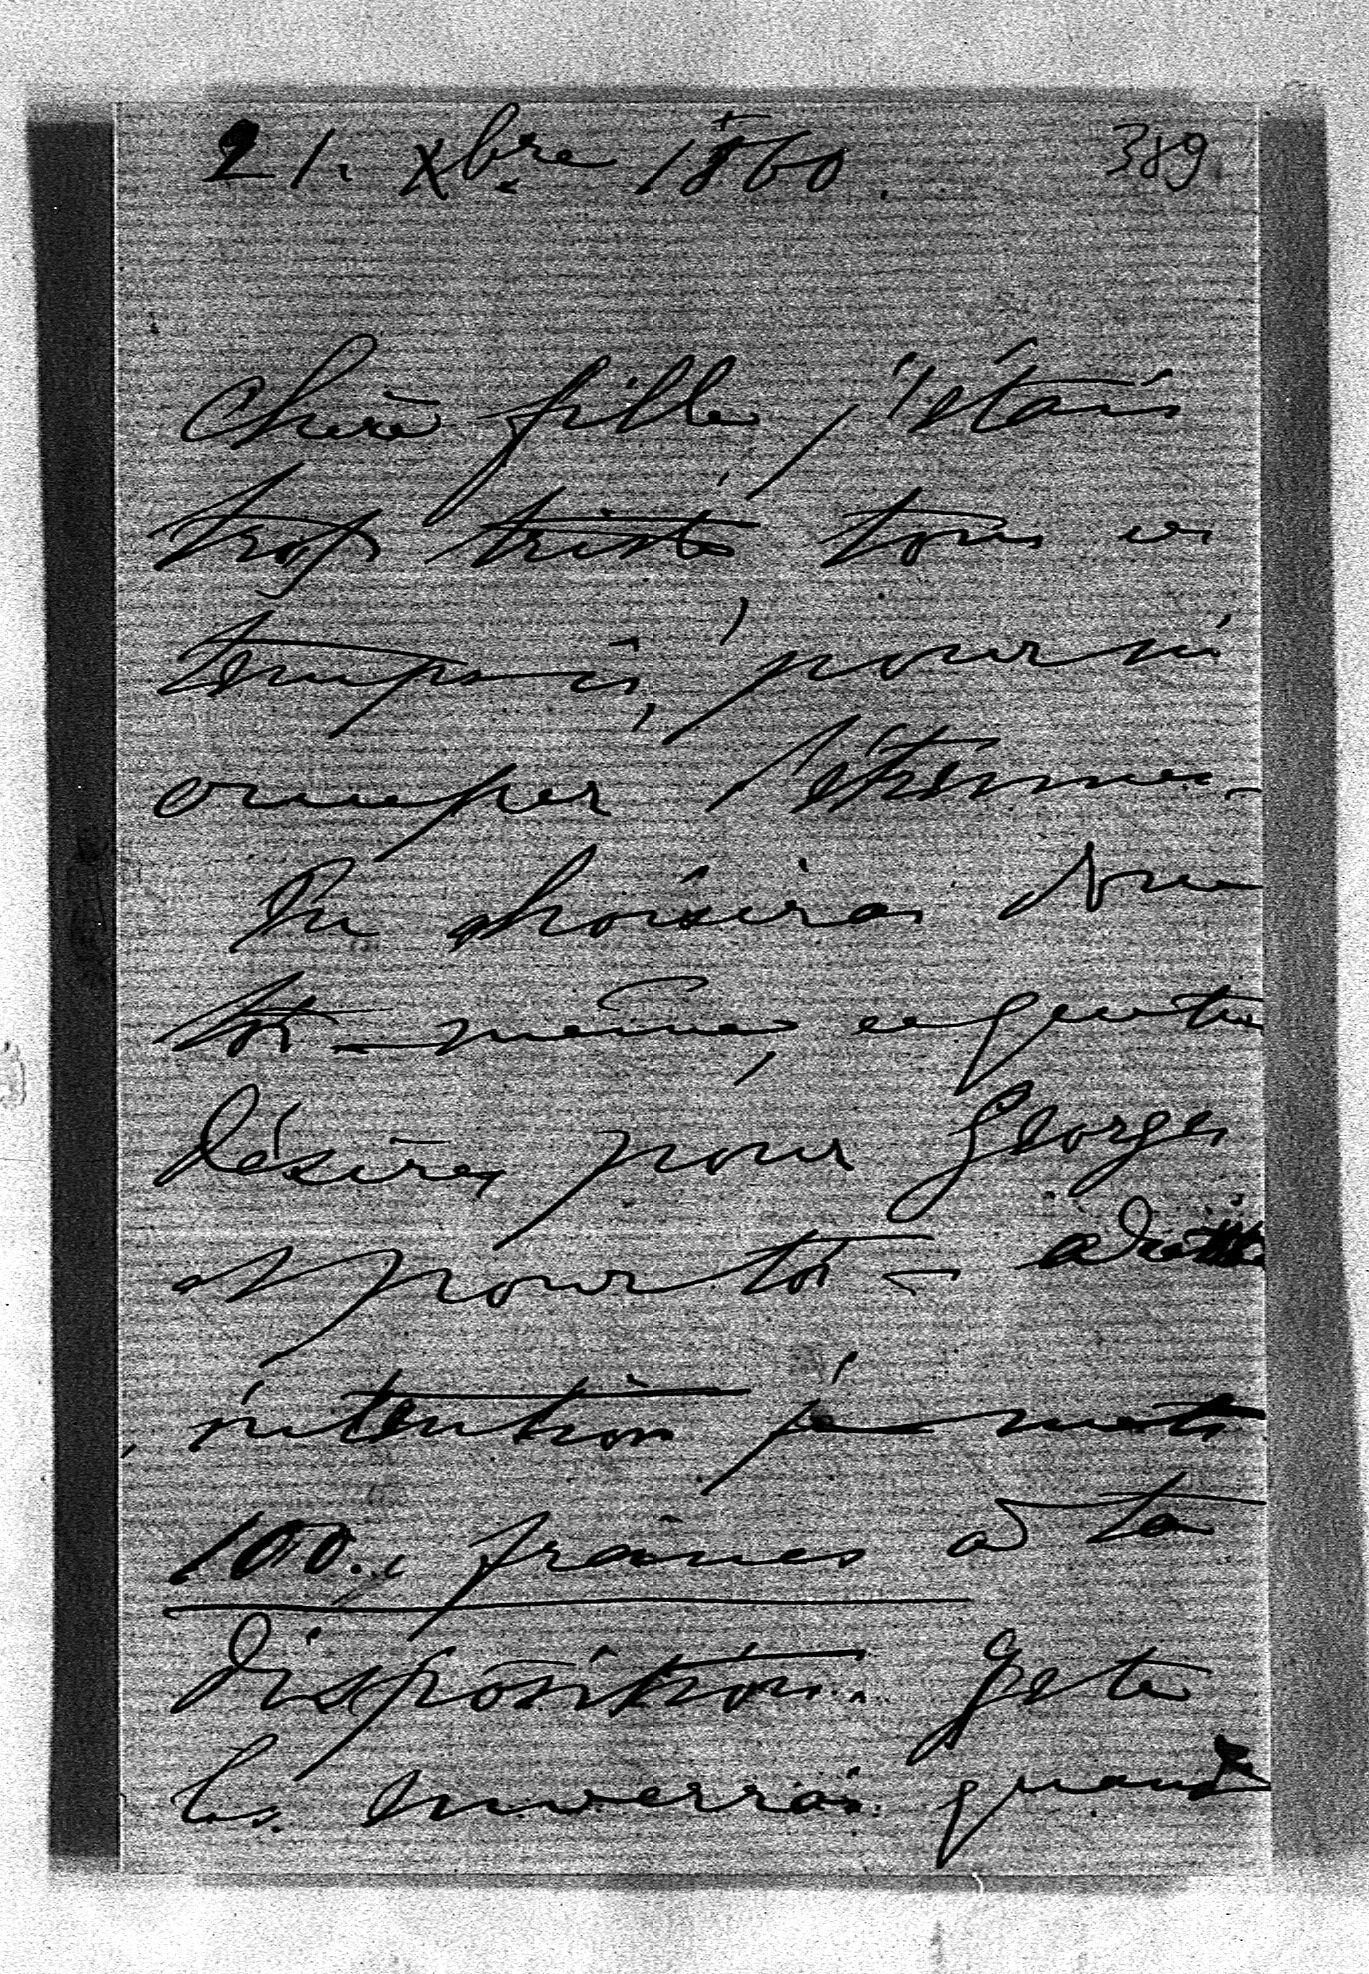 21. Xbre 1860. 389
Chère fille, j'étais
trop triste tous ces
temps-ci, pour m'
occuper d'étrennes.
Tu choisiras donc
toi-même, ce que tu
désires pour Georges
et pour toi — à cette
intention je mets
100. francs à ta
disposition. Je te
les enverrai quand